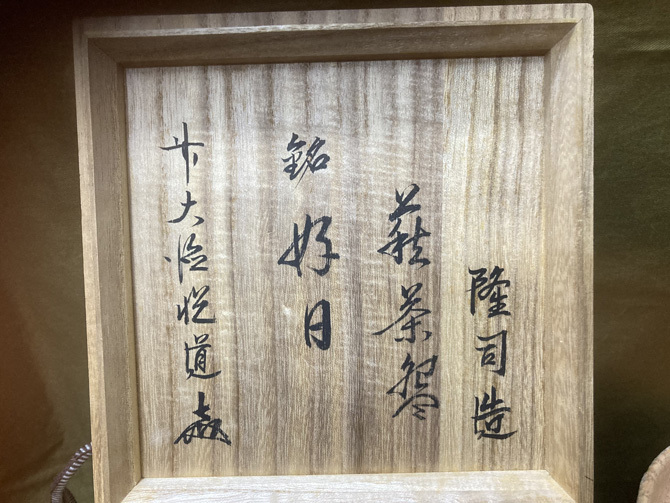 隆司造
萩茶碗
銘 好日
大
悦道